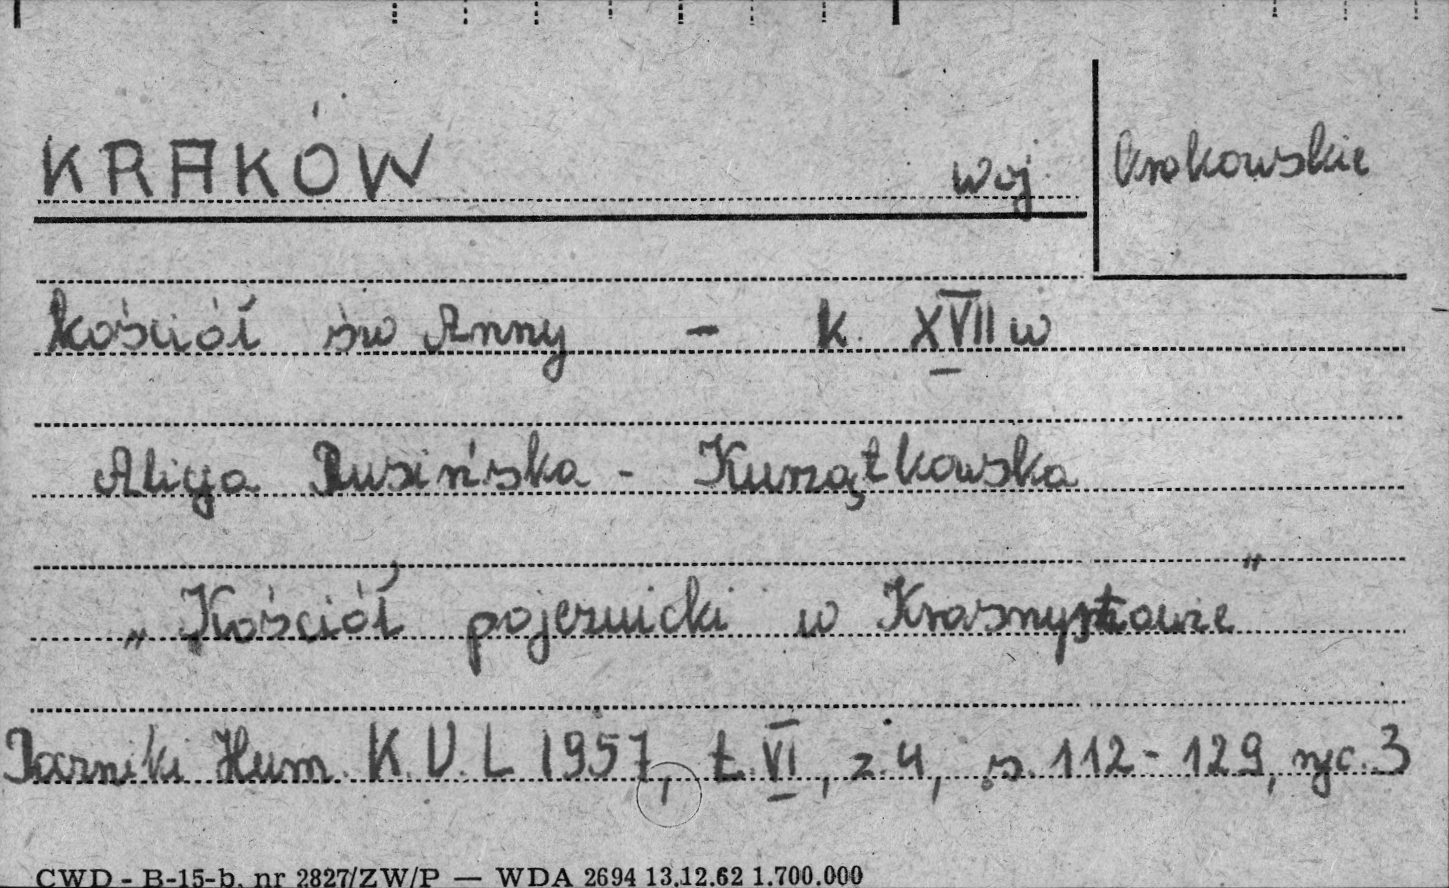 KRAKÓW woj krakowskie
kościół św Anny - k. XVII w
Alicja Rusińska - Kurzątkowska
„Kościół pojezuicki w Krasnymstawie”
Roczniki Hum. K.U.L 1957, t. VI, z. 4, s. 112-129, ryc. 3
CWD - B-15-b, nr 2827/ZW/P — WDA 2694 13.12.62 1.700.000